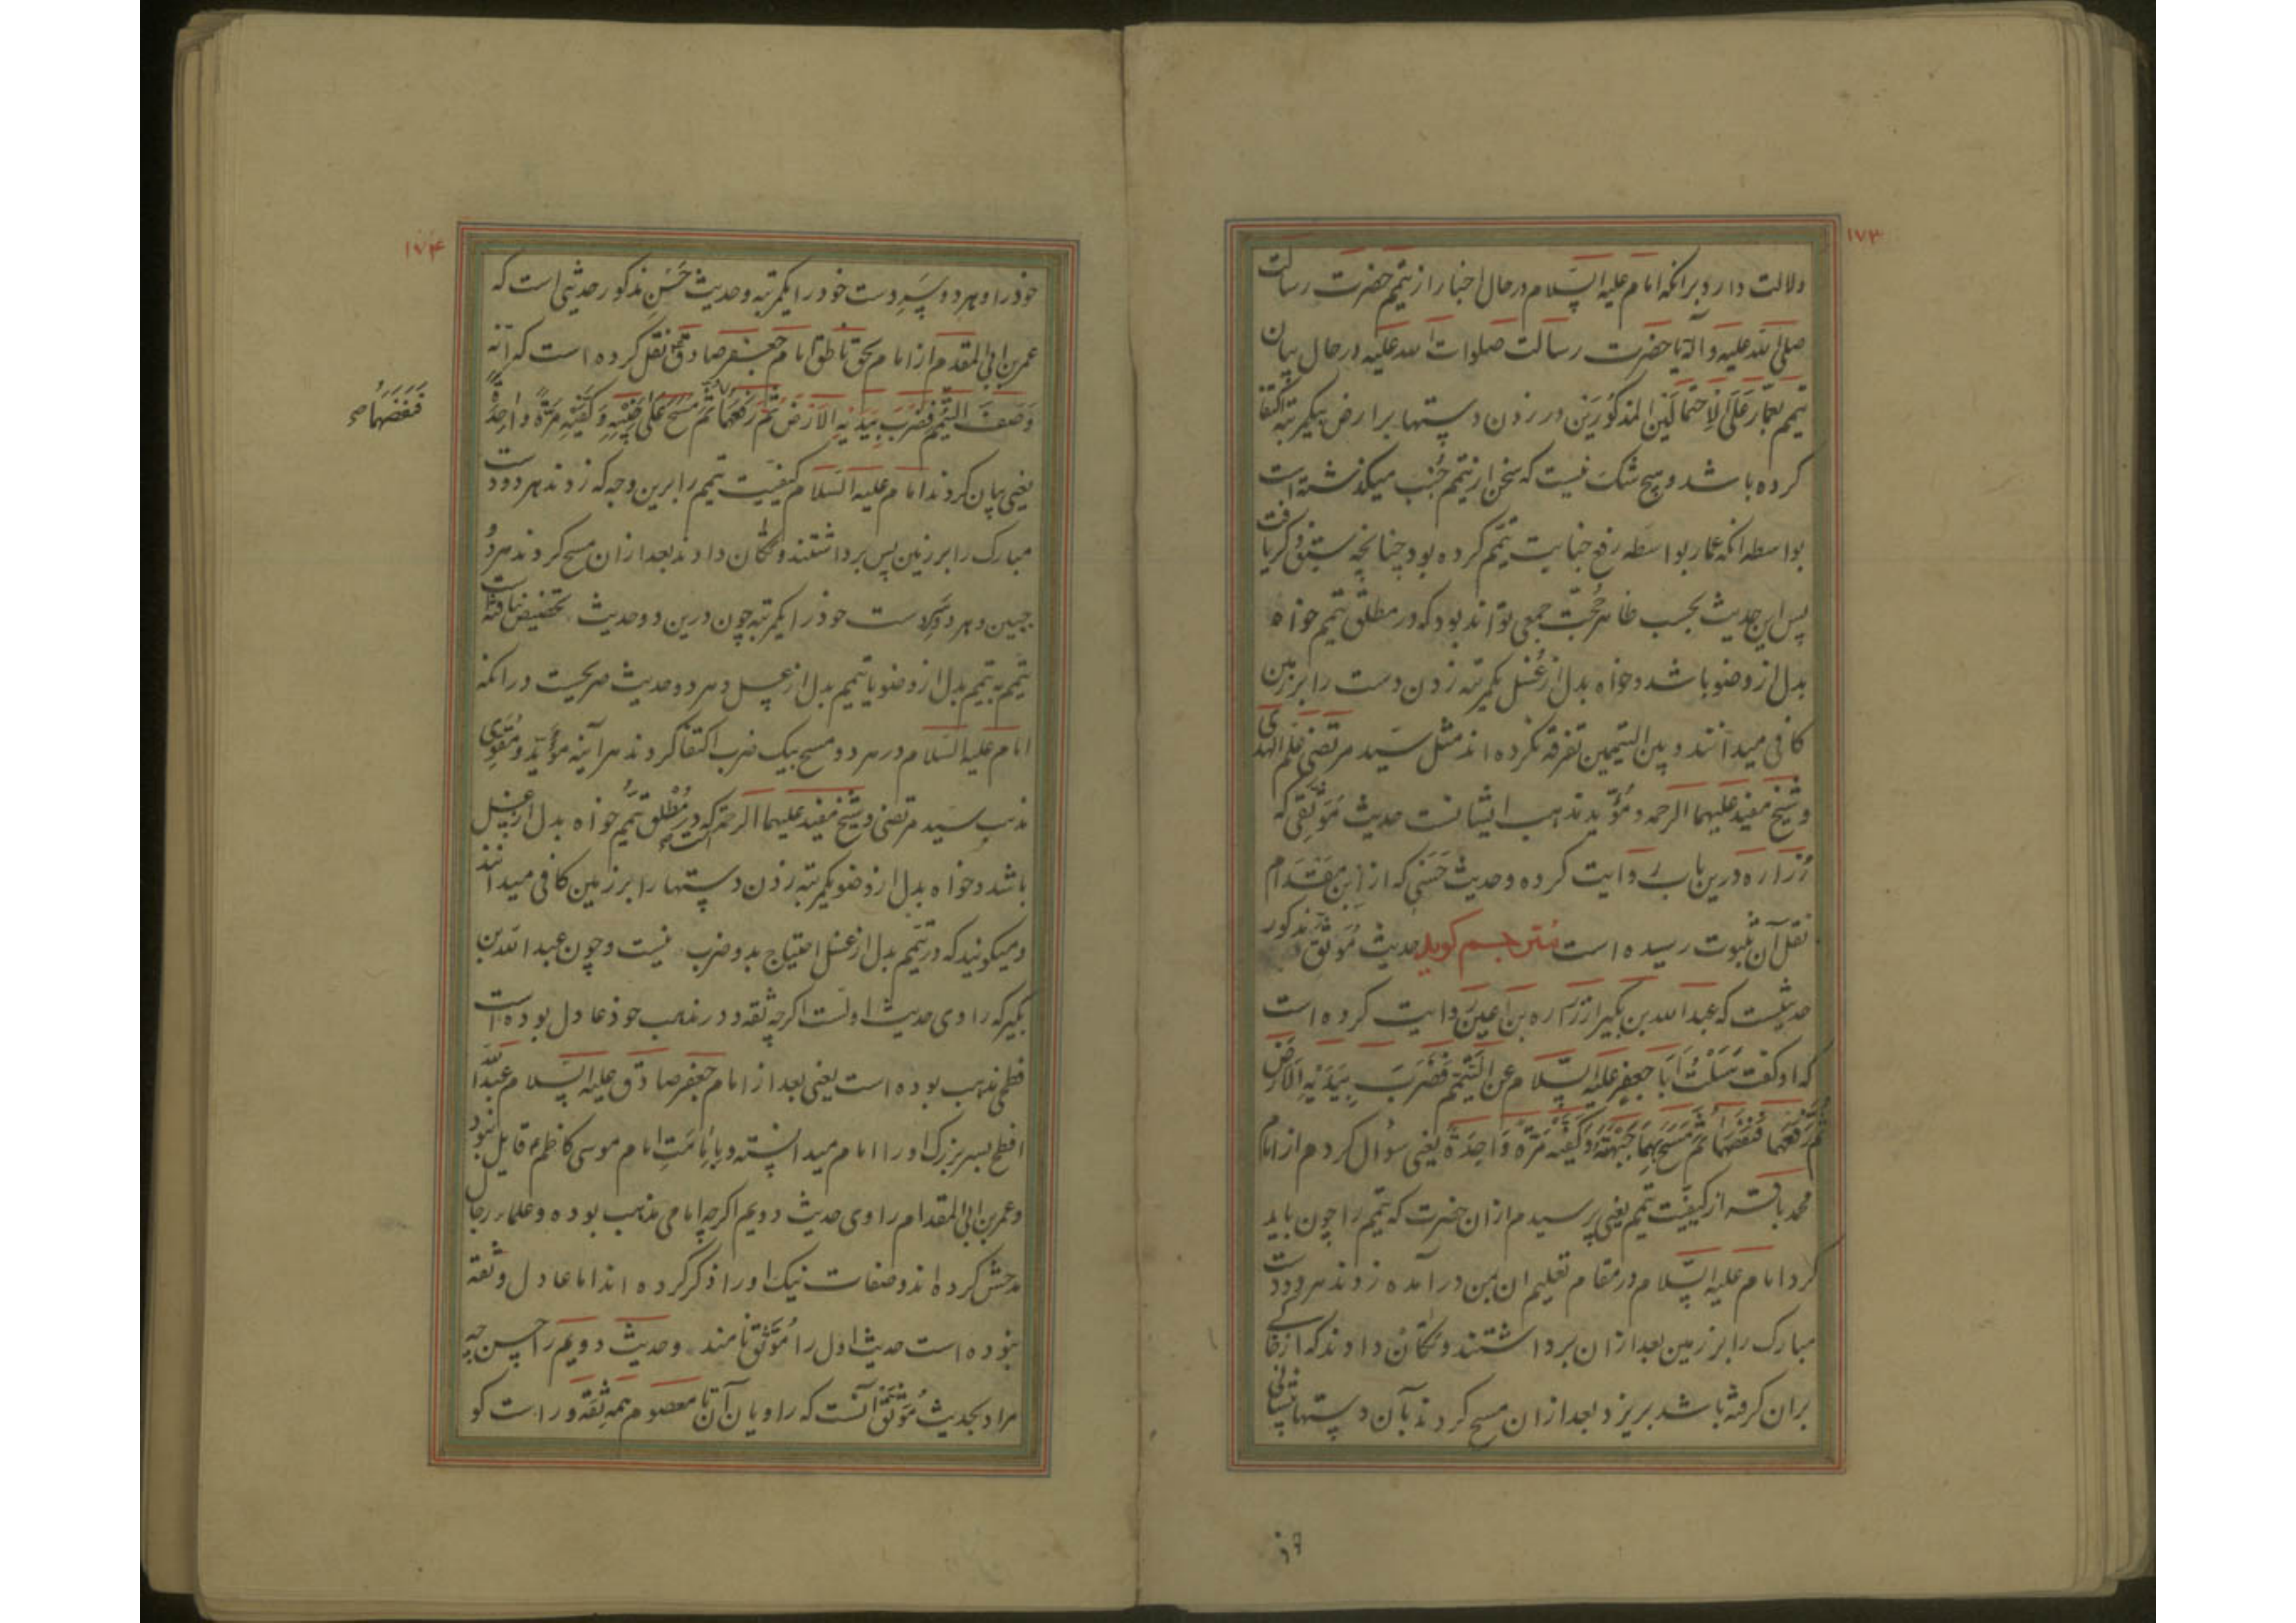 ۱۷۳
دلالت دارد برانکه امام علیه السّلام درحال اخبار از تیمم حضرت رسالت
صلی الله علیه وآله یا حضرت رسالت صلوات الله علیه درحال بیان
تیمم بعمّار عَلَی الاِحتمالَینِ المذکورَین در زدن دستها بر ارض بیکمرتبه اکتفا
کرده باشد وهیچ شک نیست که سخن از تیمم جُنُب میکذشته است
بواسطه انکه عمار بواسطه رفع جنابت تیمّم کرده بود چنانچه سبق ذکر یافت
پس این حدیث بحسب ظاهر حُجّت جمعی تواند بود که در مطلق تیمم خواه
بدل از وضو باشد وخواه بدل از غُسل یکمرتبه زدن دست را بر زمین
کافی میدانند و بین التیممین تفرقه نکرده اند مثل سیّد مرتضی علم الهدی
وشیخ مفید علیهما الرحمه و مُؤیّد مذهب ایشانست حدیث مُوَثّقی که
زُراره درین باب روایت کرده وحدیث حَسَنی که از ابن مقدام
نقل آن بثبوت رسیده است مترجم کوید حدیث مُوَثّق مذکور
حدیثیست که عبدالله بن بکیر از زراره بن اعین روایت کرده است
که او کفت سَئَلْتُ اَبا جعفرٍ علیه السّلام عن التَّیَمّم فَضَرَبَ بِیَدَیْهِ الاَرْضَ
ثُمَّ رَفَعَهُما فَنَفَضَهُما ثُمَّ مَسَحَ بِهِما جَبْهَتَهُ وَ کَفَّیْهِ مَرَّةً وَاحِدَةً یعنی سؤال کردم از امام
محمد باقر از کیفیّت تیمم یعنی پرسیدم ازان حضرت که تیمم را چون باید
کرد امام علیه السّلام در مقام تعلیم ان بمن درآمده زدند هر دو دست
مبارک را بر زمین بعد ازان برداشتند و تکان دادند که از خاک
بران کرفته باشد بریزد بعد ازان مسح کردند بآن دستها پیشانی
۱۷۴
خود را وهر دو پسِ دست خود را یکمرتبه وحدیث حَسَنِ مذکور حدیثی است که
عمر بن ابی المقدم از امام بحق ناطق امام جعفر صادق نقل کرده است که انّه
وَصَفَ التَّیَمُّمَ فَضَرَبَ بِیَدَیْهِ الاَرْضَ ثُمَّ رَفَعَهُما ثُمَّ مَسَحَ عَلی جَبِینَیْهِ وَ کَفَّیْهِ مَرَّةً وَاحِدَةً
فَنَفَضَهُما صح
یعنی بیان کردند امام علیه السّلام کیفیّت تیمم را برین وجه که زدند هر دو دست
مبارک را بر زمین پس برداشتند و تکان دادند بعد ازان مسح کردند هر دو
جبین وهر دو دست خود را یکمرتبه چون درین دو حدیث تخصیص نیافته است
تیمم به تیمم بدل از وضو یا تیمم بدل از غسل وهر دو حدیث صریحست درانکه
امام علیه السّلام در هر دو مسح بیک ضرب اکتفا کردند هر آینه مُؤَیّد ومُقَوّی
مذهب سید مرتضی وشیخ مفید علیهما الرحمه است که در مُطلق تیمّم خواه بدل از غسل
باشد وخواه بدل از وضو یکمرتبه زدن دستها را بر زمین کافی میدانند
ومیکویند که در تیمّم بدل از غسل احتیاج بدو ضرب نیست وچون عبدالله بن
بکیر که راوی حدیث اولست اکرچه ثقه و در مذهب خود عادل بوده است
فطحی مذهب بوده است یعنی بعد از امام جعفر صادق علیه السّلام عبدالله
افطح پسر بزرک او را امام میدانسته و بامامتِ امام موسی کاظم قایل نبود
وعمر بن ابی المقدام راوی حدیث دویم اکرچه امامی مذهب بوده وعلماء رجال
مدحش کرده اند وصفات نیک او را ذکر کرده اند اما عادل وثقه
نبوده است حدیث اول را مُوَثّق نامند وحدیث دویم را حسن چه
مراد بحدیث مُوَثّق آنست که راویان آن تا معصوم همه ثِقَه و راست کو